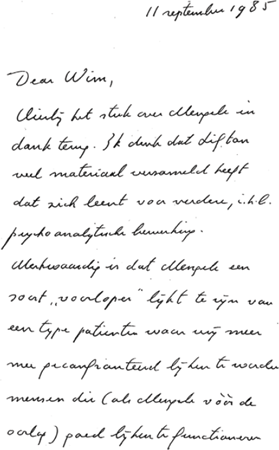 11 september 1985
Dear Wim,
Hierbij het stuk over Mengele in
dank terug. Ik denk dat Lifton
veel materiaal verzameld heeft
dat zich leent voor verdere, i.h.b.
psychoanalytische bewerking.
Merkwaardig is dat Mengele een
soort "voorloper" lijkt te zijn van
een type patienten waar wij meer
mee geconfronteerd lijken te worden
mensen die (als Mengele vóór de
oorlog) goed lijken te functioneren